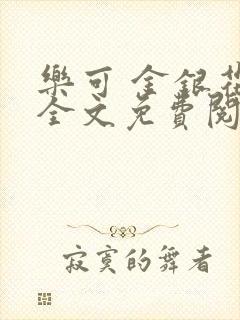 樂可 金銀花
全文免費閱
寂寞的舞者